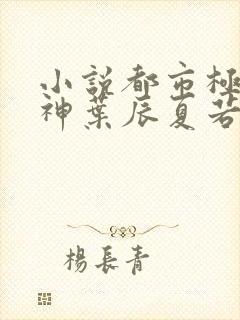 小説都市極
神葉辰夏若
楊長青